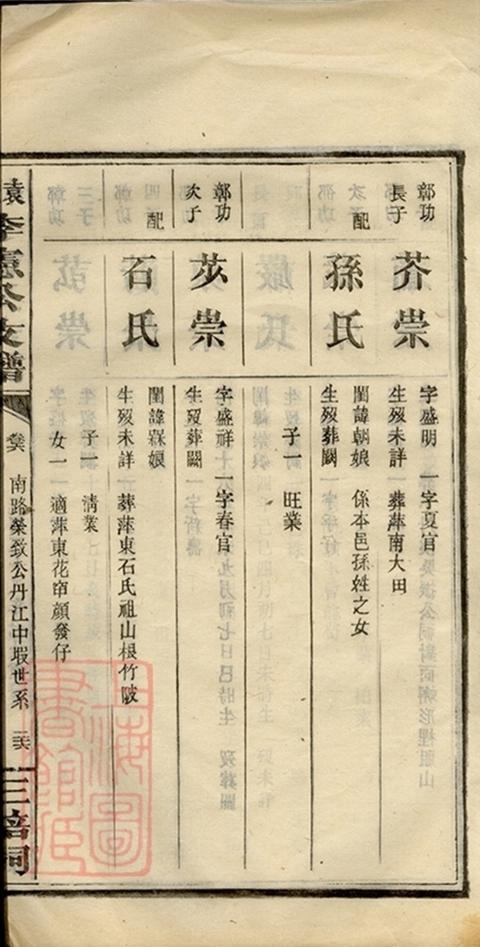 彰功
長子
芥崇
字盛明 一字夏官
生歿未詳 葬萍南大田
配
孫氏
閨諱朝娘 係本邑孫姓之女
生歿葬闕
子一 旺業
彰功
次子
苡崇
字盛祥 一字春官
生歿葬闕
配
石氏
閨諱槑娘
生歿未詳 葬萍東石氏祖山根竹陂
子一 清業
女一 適萍東花𥥛顏發仔
南路榮致公丹江中瑕世系